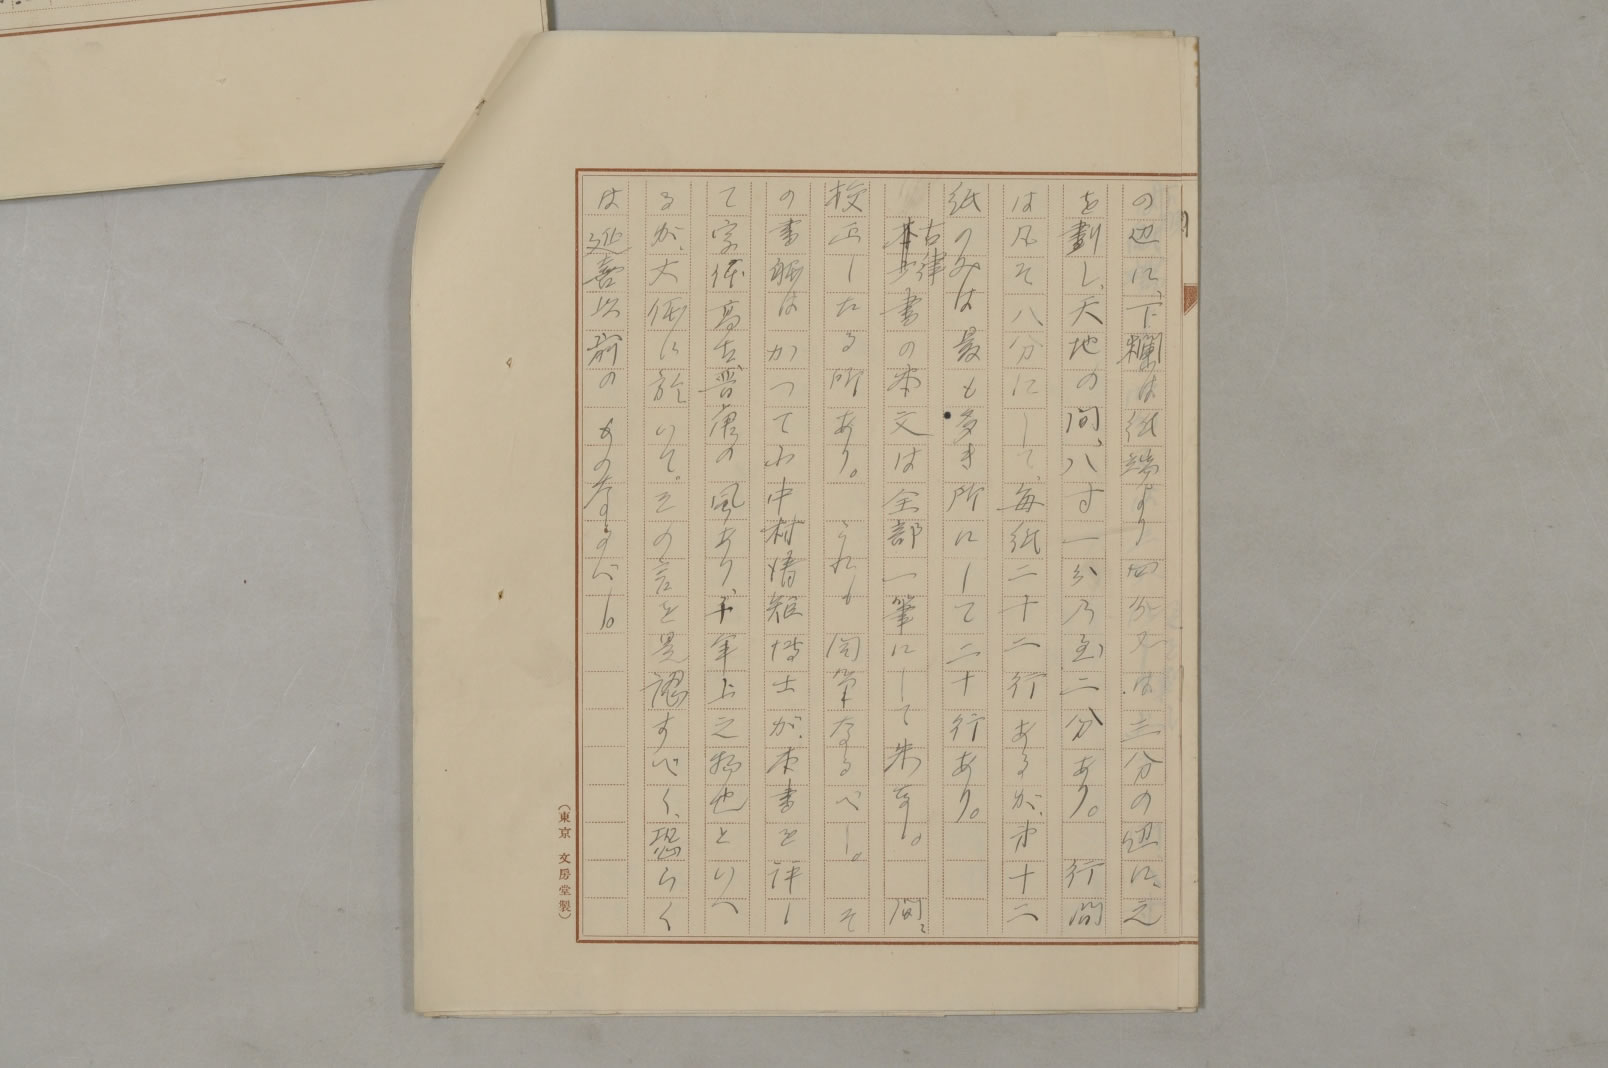 の辺に、下欄は紙端より四分又は三分の辺に、之
を劃し、天地の間、八寸一分乃至二分あり。 行間
は凡そ八分にして、毎紙二十二行あるが、第十二
紙のみは最も多き所にして二十行あり。
古律書の本文は全部一筆にして朱
校正したる所あり。 これも同筆なるべし。 そ
の書躰はかつて中村博士が、本書を評し
て字体高古晋唐の風あり、千年上之物也といへ
るが、大体に於いて。この言を是認すべく、恐らく
は延喜以前のものなるべし。
(東京 文房堂製)